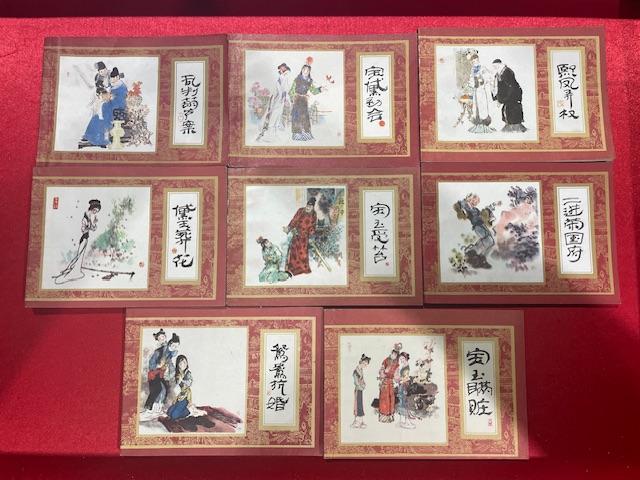 乱判葫芦案
宝黛初会
熙凤弄权
黛玉葬花
宝玉受笞
二进荣国府
鸳鸯抗婚
宝玉瞒赃